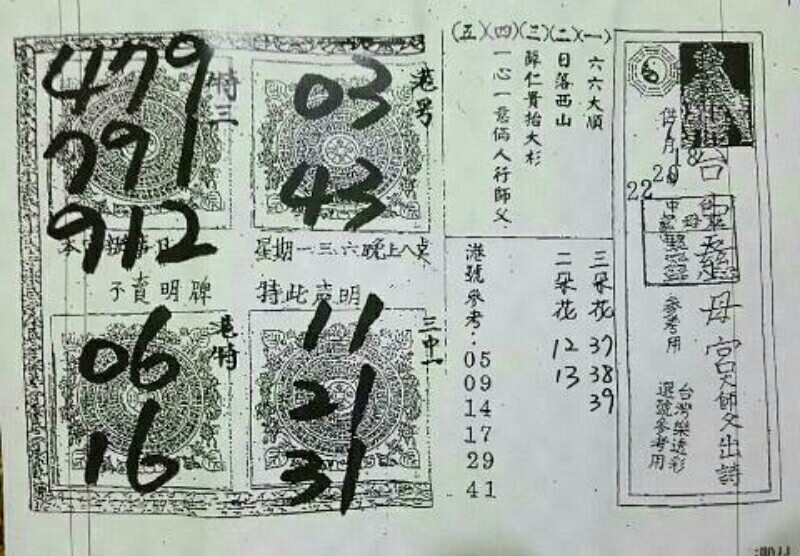 台中聖母宮大師父出詩
供
月
18
20
22
中
聖母
參考用
台灣樂透彩
選號參考用
(一)六六大順
(二)日落西山
(三)薛仁貴抬大杉
(四)一心一意倆人行師父
(五)
三朵花 37 38 39
二朵花 12 13
港號參考：
05
09
14
17
29
41
港号
03
43
特三
479
791
912
星期一.三.六晚上八点
不賣明牌 特此声明
三中一
11
21
31
港特
06
16